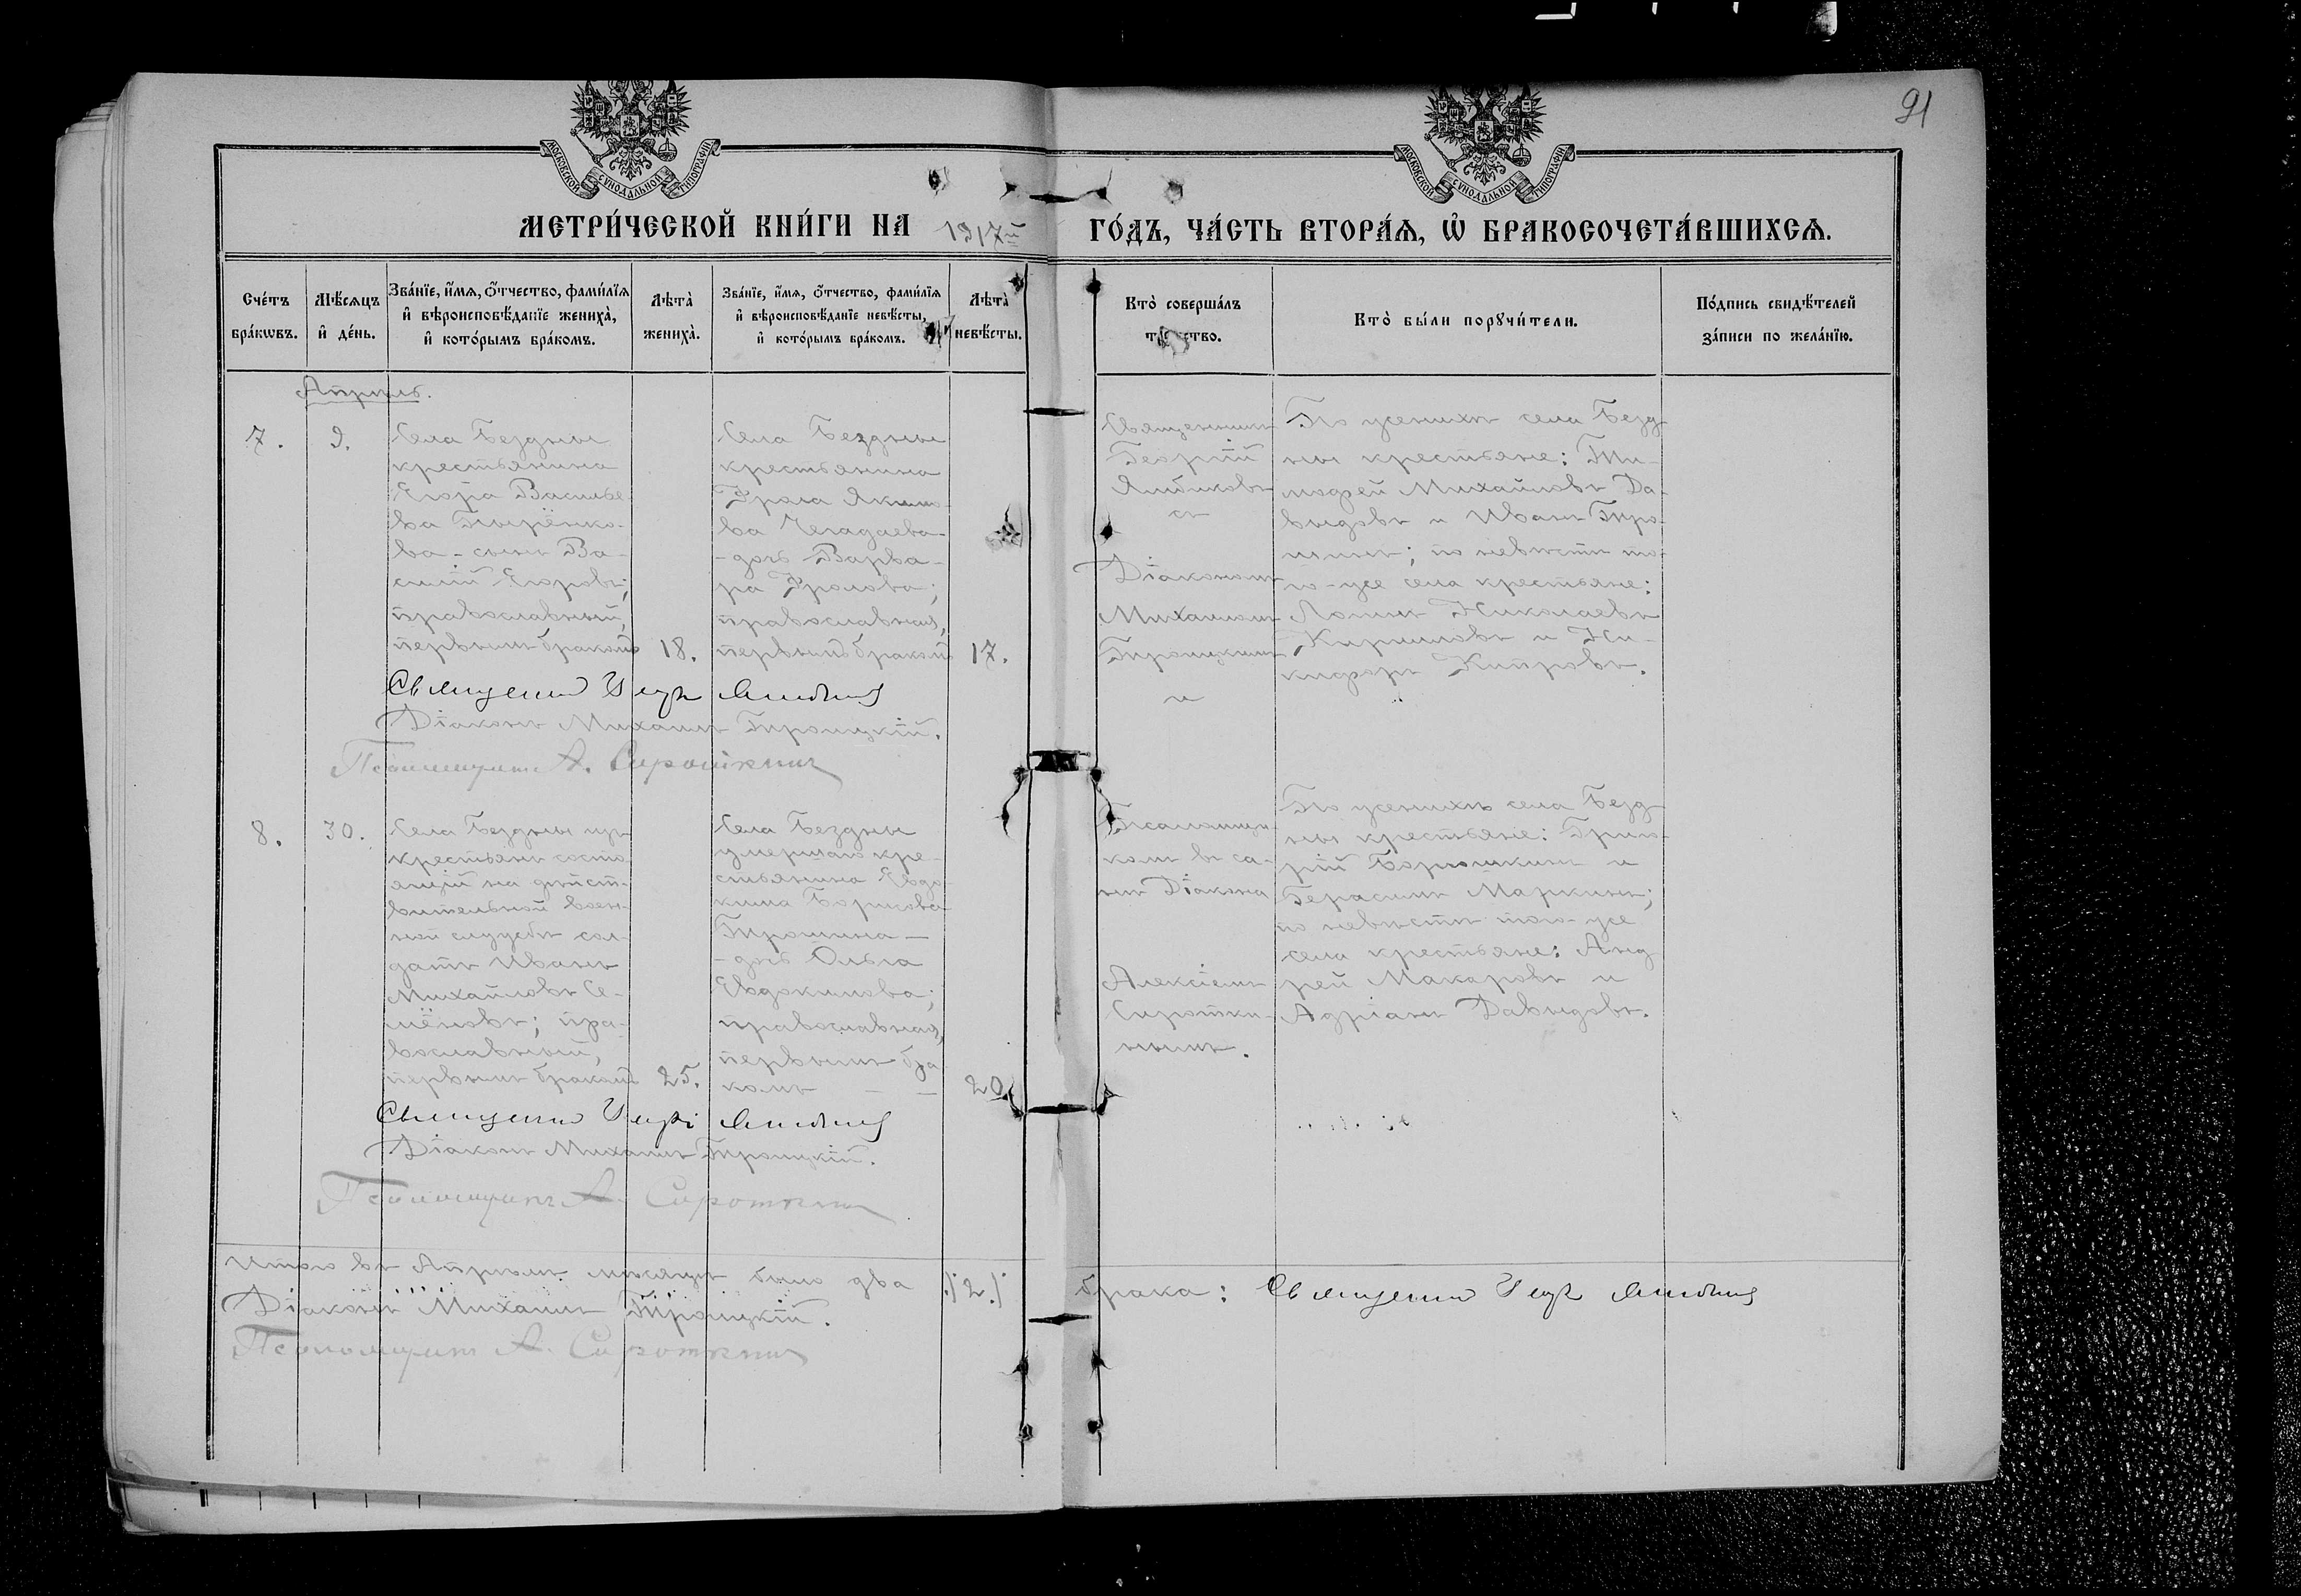 91
МОСКОВСКОЙ СѴНОДАЛЬНОЙ ТИПОГРАФІИ
МОСКОВСКОЙ СѴНОДАЛЬНОЙ ТИПОГРАФІИ
МЕТРИ́ЧЕСКОЙ КНИ́ГИ НА 1917й ГО́ДЪ, ЧА́СТЬ ВТОРА́Ѧ, Ѡ҆ БРАКОСОЧЕТА́ВШИХСѦ.
Сче́тъ
бра́кѡвъ.
Мѣ́сѧцъ
и҆ де́нь.
Зва́нїе, и҆́мѧ, ѻ҆́тчество, фами́лїѧ
и҆ вѣроисповѣ́данїе жениха̀,
и҆ кото́рымъ бра́комъ.
Лѣта̀
жениха̀.
Зва́нїе, и҆́мѧ, ѻ҆́тчество, фами́лїѧ
и҆ вѣроисповѣ́данїе невѣ́сты,
и҆ кото́рымъ бра́комъ.
Лѣта̀
невѣ́сты.
Кто̀ соверша́лъ
Кто̀ бы́ли порꙋчи́тели.
По́дпись свидѣ́телей
за́писи по жела́нїю.
Апрѣль.
7.
9.
Села Бездны
крестьянина
Егора Василье-
ва
ва - сынъ Ва-
силій Егоровъ;
православный,
первымъ бракомъ
18.
Села Бездны
крестьянина
Фрола Якимо-
ва Чегадаева-
- дочь Варва-
ра Фролова;
православная,
первымъ бракомъ
17.
Священникъ
Георгій
съ
Діакономъ
Михаиломъ
Троицкимъ
и
По женихѣ села Безд-
ны крестьяне: Ти-
мофей Михайловъ Да-
выдовъ и Иванъ Тро-
шинъ; по невѣстѣ то-
го-же села крестьяне:
Логинъ Николаевъ
Кириловъ и Ни-
кифоръ Кипровъ.
Діаконъ Михаилъ Троицкій.
Псаломщикъ А. Сироткинъ
8.
30.
Села Бездны изъ
крестьянъ состо-
ящій на дѣйст-
вительной воен-
ной службѣ сол-
датъ Иванъ
Михайловъ Се-
мёновъ; пра-
вославный,
первымъ бракомъ
25.
Села Бездны
умершаго кре-
стьянина Евдо-
кима Борисова
Трошина -
- дочь Ольга
Евдокимова;
православная,
первымъ бра-
комъ
20
Псаломщи-
комъ въ са-
нѣ Діакона
Алексіемъ
Сиротки-
нымъ.
По женихѣ села Безд-
ны крестьяне: Григо-
рій Борюшкинъ и
Герасимъ Маркинъ;
по невѣстѣ того-же
села крестьяне: Анд-
рей Макаровъ и
Адріанъ Давыдовъ.
Діаконъ Михаилъ Троицкій.
Псаломщикъ А. Сироткинъ
Итого въ Апрѣлѣ мѣсяцѣ было два /2/ брака:
Діаконъ Михаилъ Троицкій.
Псаломщикъ А. Сироткинъ